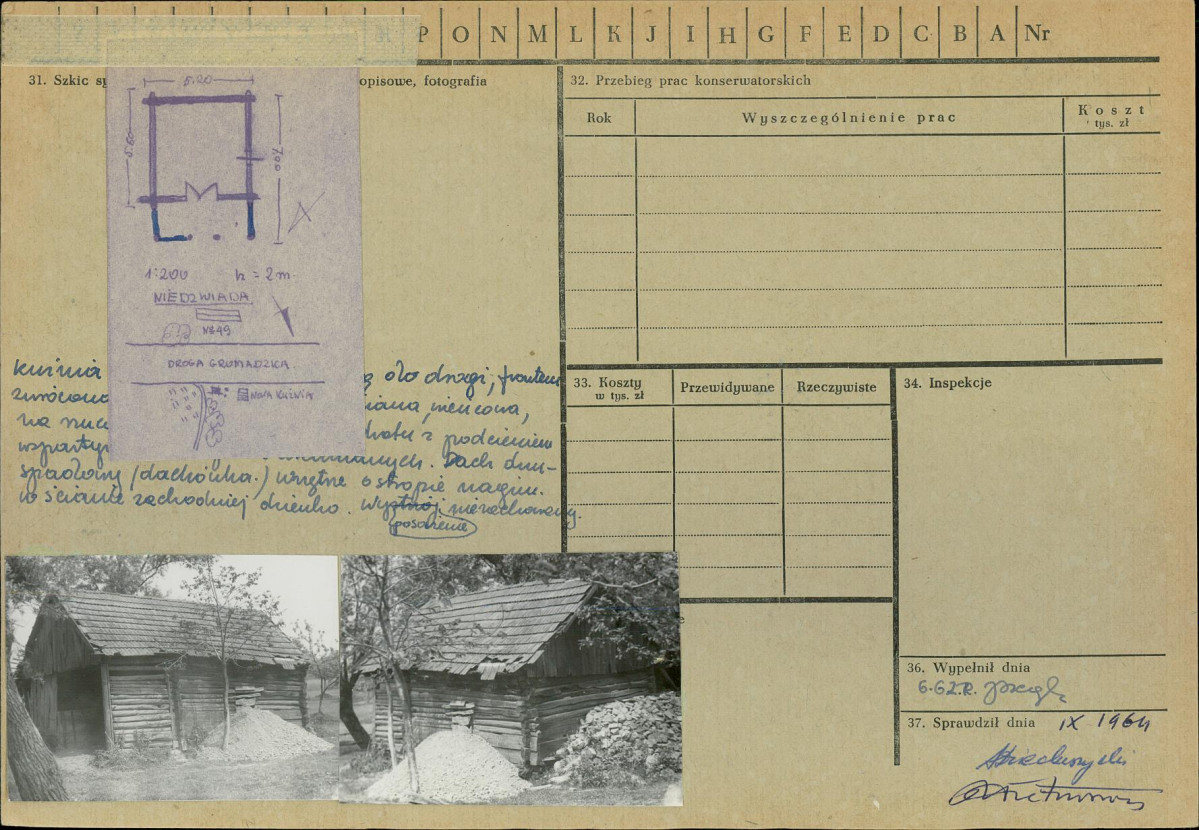 P O N M L K J I H G F E D C B A Nr
31. Szkic sy opisowe, fotografia
5.20
5.60
7.00
1:200 h = 2m
NIEDZWIADA
NR49
DROGA GROMADZKA
NOWA KUŹNIA
kuźnia ę oło drogi, frontem
zwrócona wieńcowa,
na z podcieniem
wsparty Dach dwu-
spadowy (dachówka.) wnętrze o stropie nagim.
w ścianie zachodniej okienko. Wystrój niezachowany.
posażenie
32. Przebieg prac konserwatorskich
Rok Wyszczególnienie prac Koszt
tys. zł
33. Koszty
w tys. zł
Przewidywane Rzeczywiste
34. Inspekcje
36. Wypełnił dnia
6.62.R.
37. Sprawdził dnia IX 1964